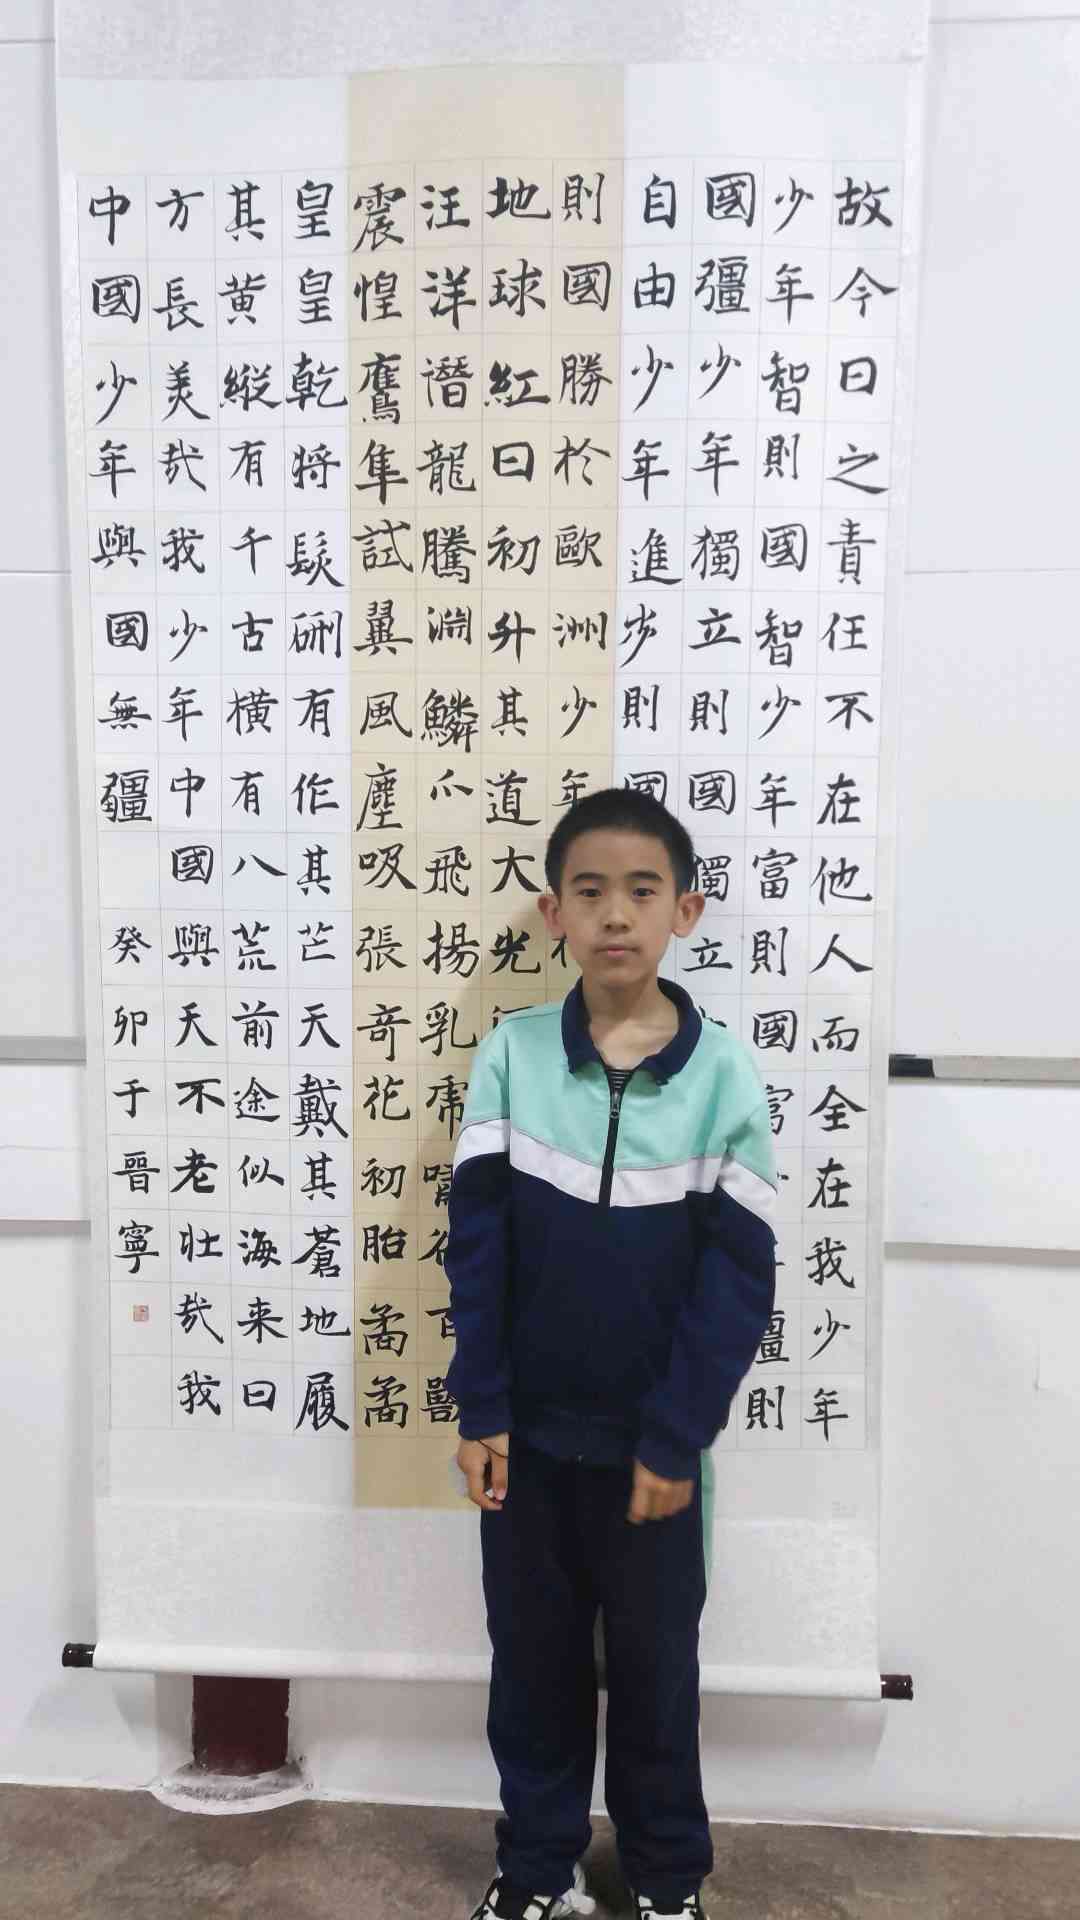 故今日之責任不在他人而全在我少年
少年智則國智少年富則國富則
國彊少年獨立則國獨立
自由少年進步則國
則國勝於歐洲少年
地球紅日初升其道大光
汪洋潛龍騰淵鱗爪飛揚乳虎嘯谷百獸
震惶鷹隼試翼風塵吸張奇花初胎矞矞
皇皇乾將髮硎有作其芒天戴其蒼地履
其黄縱有千古橫有八荒前途似海来日
方長美哉我少年中國與天不老壯哉我
中國少年與國無疆 癸卯于晉寧